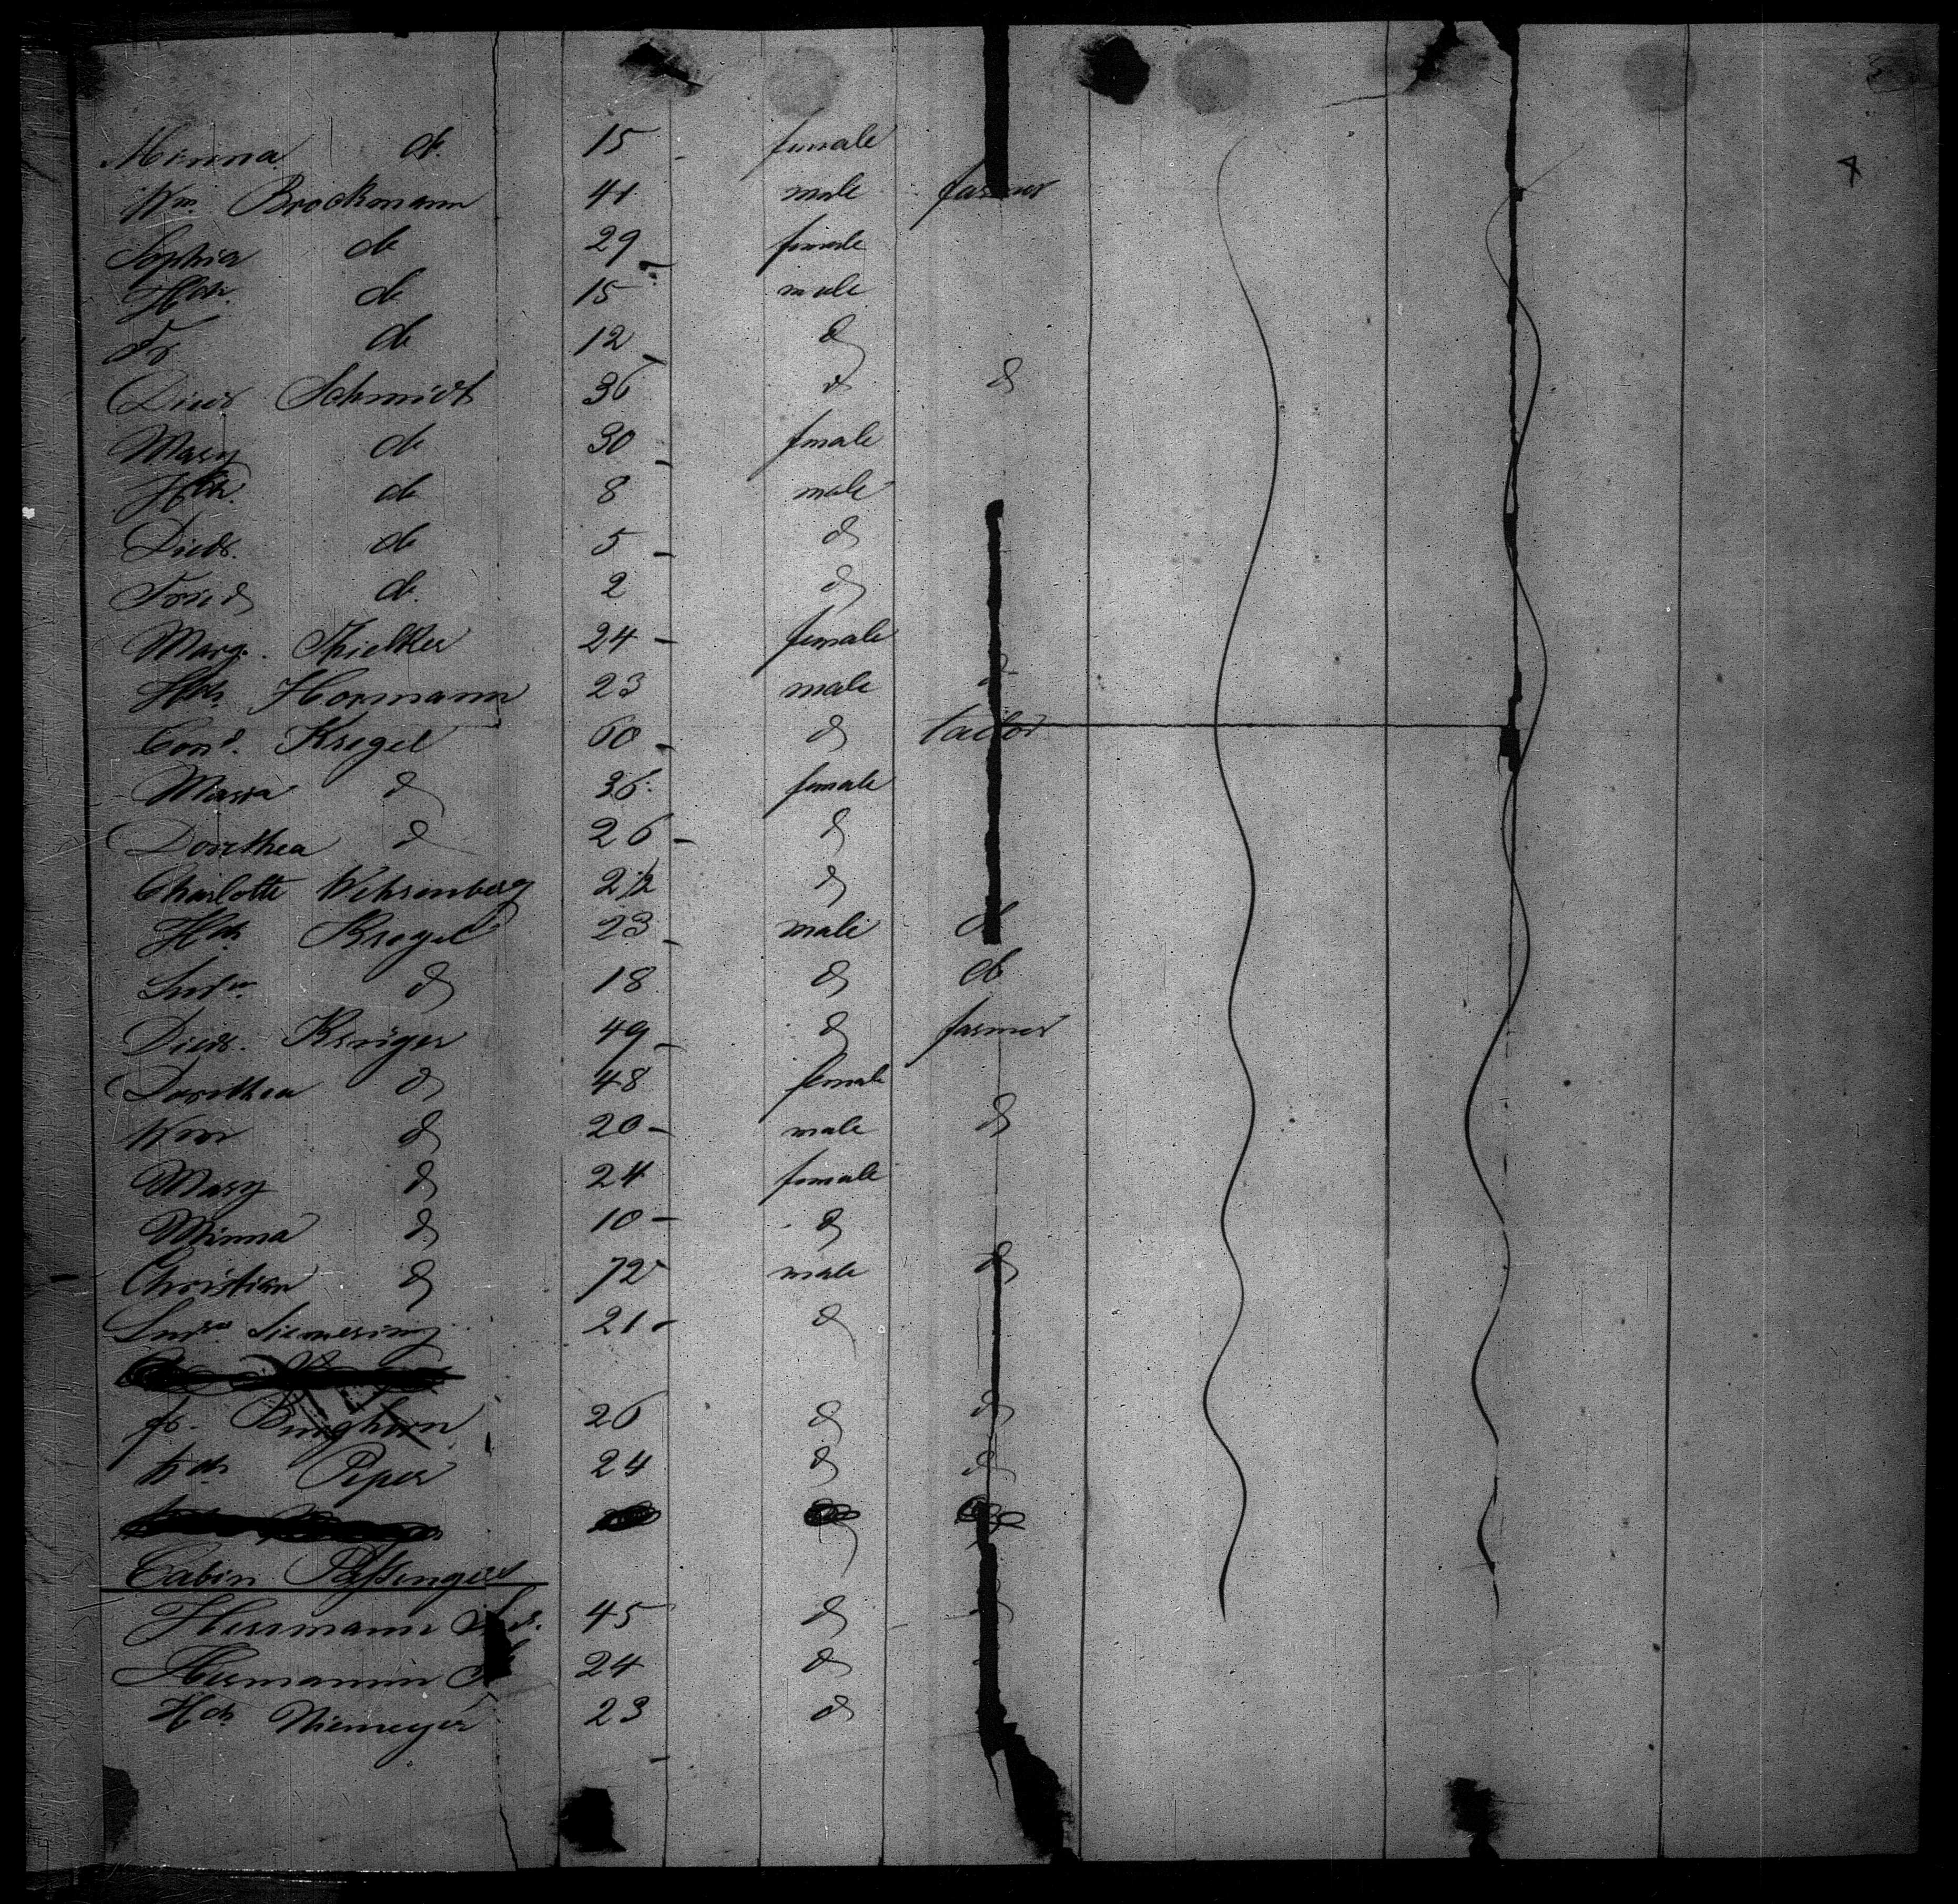 Minna do. 15 female
Wm. Brockmann 41 male farmer
Sophia do 29 female
Hch. do 15 male
Fr do 12 d
Died. Schmidt 36 d d
Mary do 30 female
Hch. do 8 male
Died. do 5 d
Fried do. 2 d
Marg. Thielker 24 female
Hch Hormann 23 male d
Conr. Kregel 60 d tailor
Maria d 36 female
Dorothea d 26 d
Charlotte Wehrenberg 2 1/2 d
Hch Kregel 23 male do
Ludw. d 18 d do
Died. Krüger 49 d farmer
Dorothea d 48 female
Wm d 20 male d
Mary d 24 female
Minna d 10 d
Christian d 72 male d
Ludw Siemering 21 d
fr. Burghorn 26 d d
Hch Peper 24 d d
Cabin Passengers
Herrmann 45 d
Hermann 24 d
Hch Niemeyer 23 d